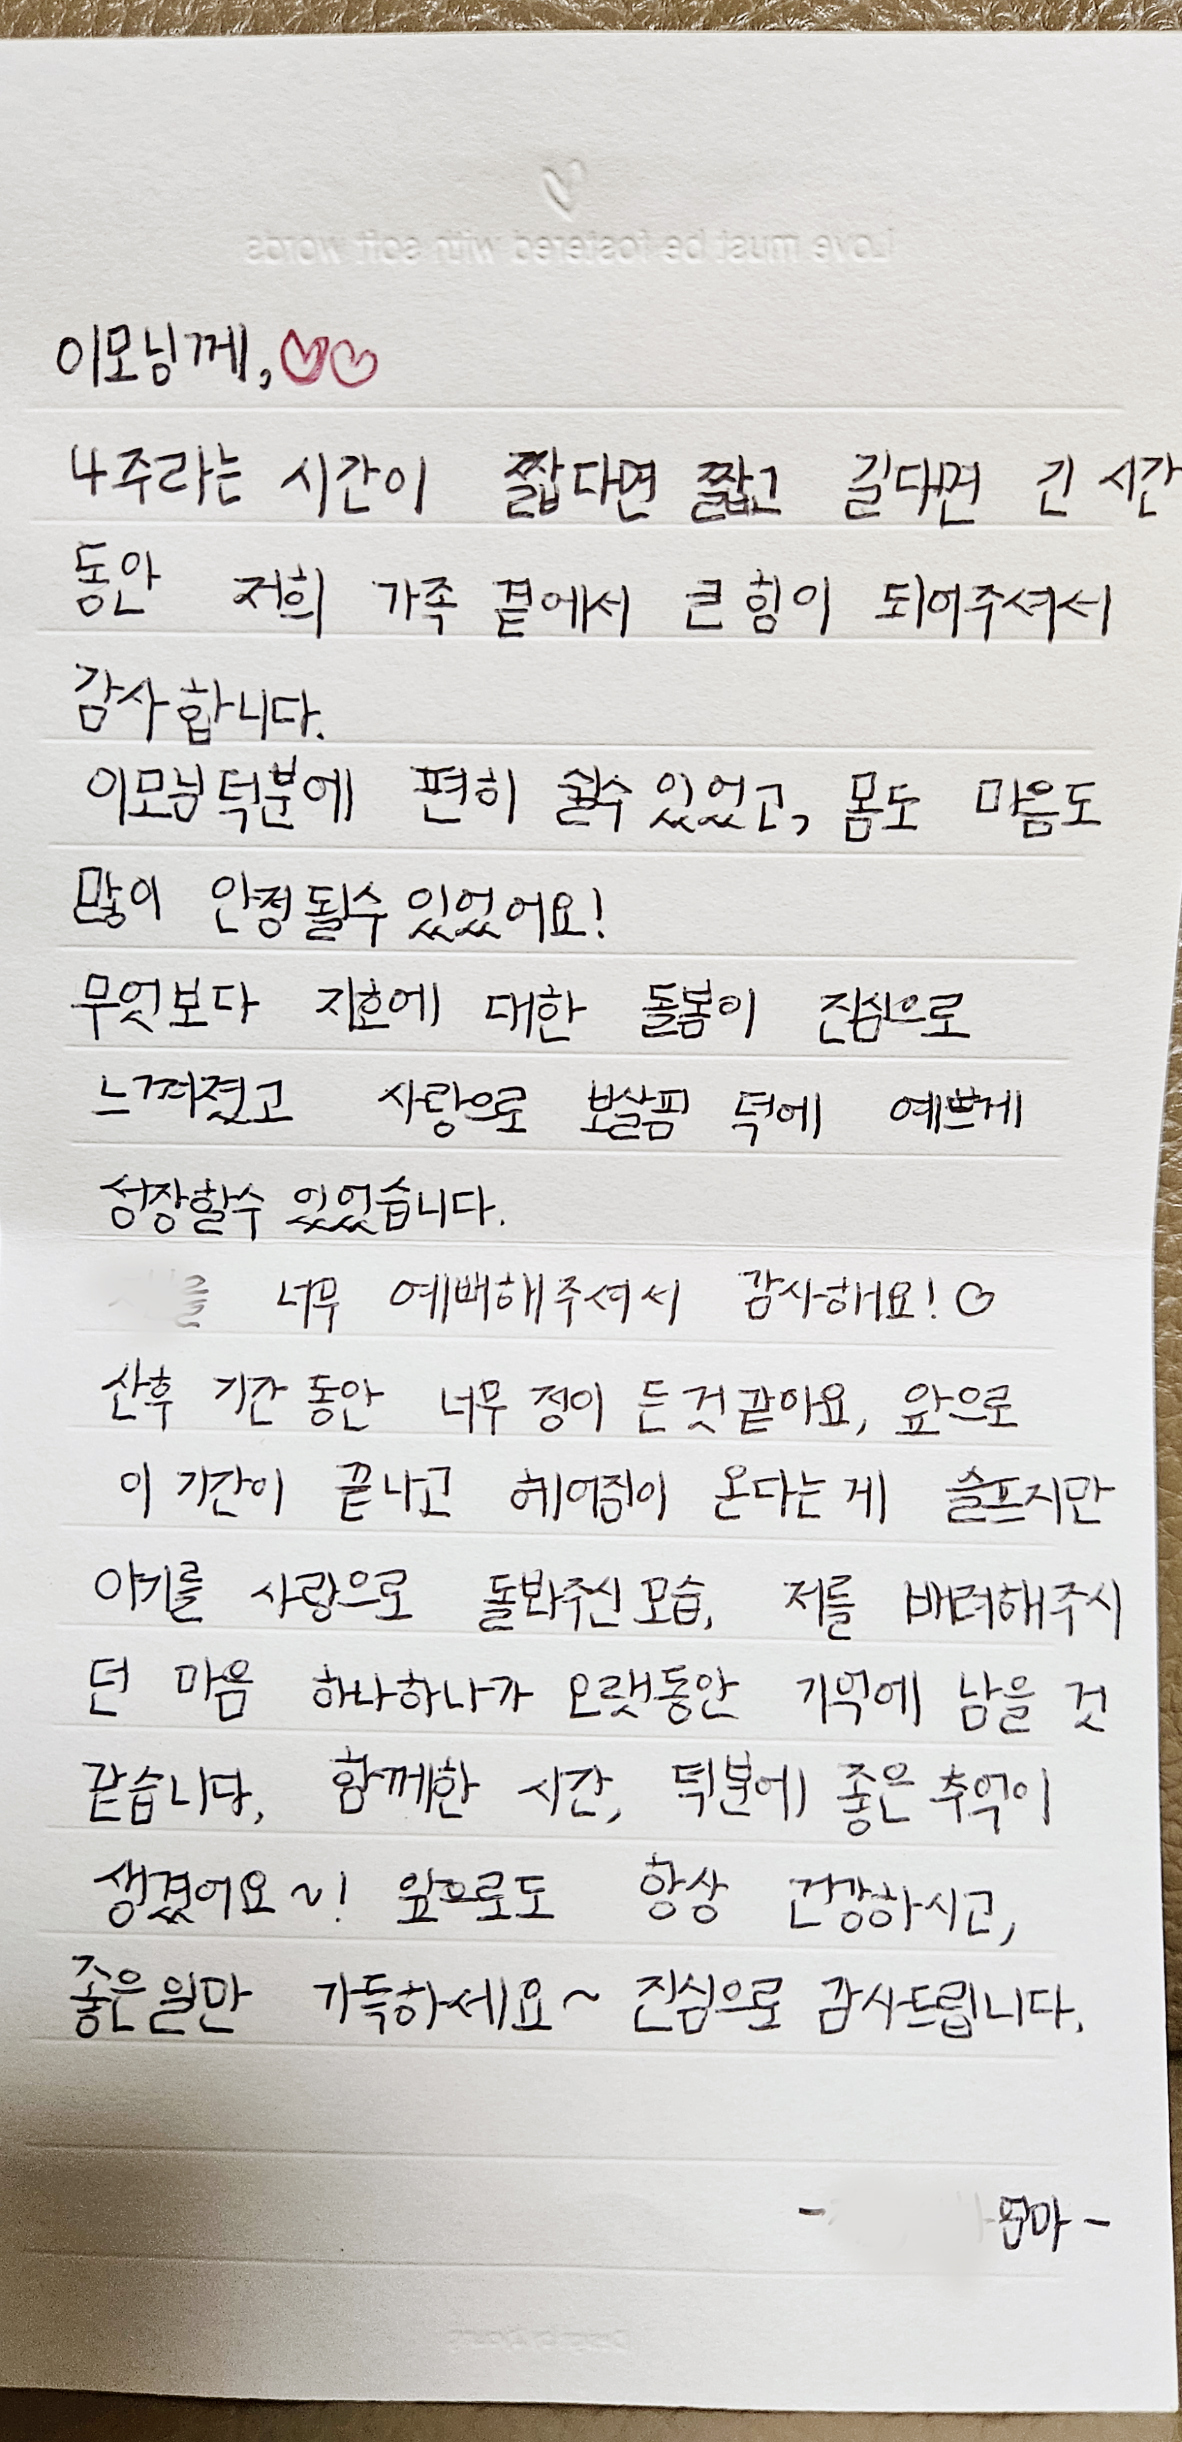 Love must be fostered with soft words
이모님께,♡♡
4주라는 시간이 짧다면 짧고 길다면 긴 시간
동안 저희 가족 곁에서 큰 힘이 되어주셔서
감사합니다.
이모님 덕분에 편히 쉴수 있었고, 몸도 마음도
많이 안정 될수 있었어요!
무엇보다 지호에 대한 돌봄이 진심으로
느껴졌고 사랑으로 보살핌 덕에 예쁘게
성장할수 있었습니다.
를 너무 예뻐해주셔서 감사해요!♡
산후 기간 동안 너무 정이 든 것 같아요, 앞으로
이 기간이 끝나고 헤어짐이 온다는게 슬프지만
아기를 사랑으로 돌봐주신 모습, 저를 배려해주시
던 마음 하나하나가 오랫동안 기억에 남을 것
같습니다. 함께한 시간, 덕분에 좋은 추억이
생겼어요~! 앞으로도 항상 건강하시고,
좋은일만 가득하세요~ 진심으로 감사드립니다.
- 엄마 -